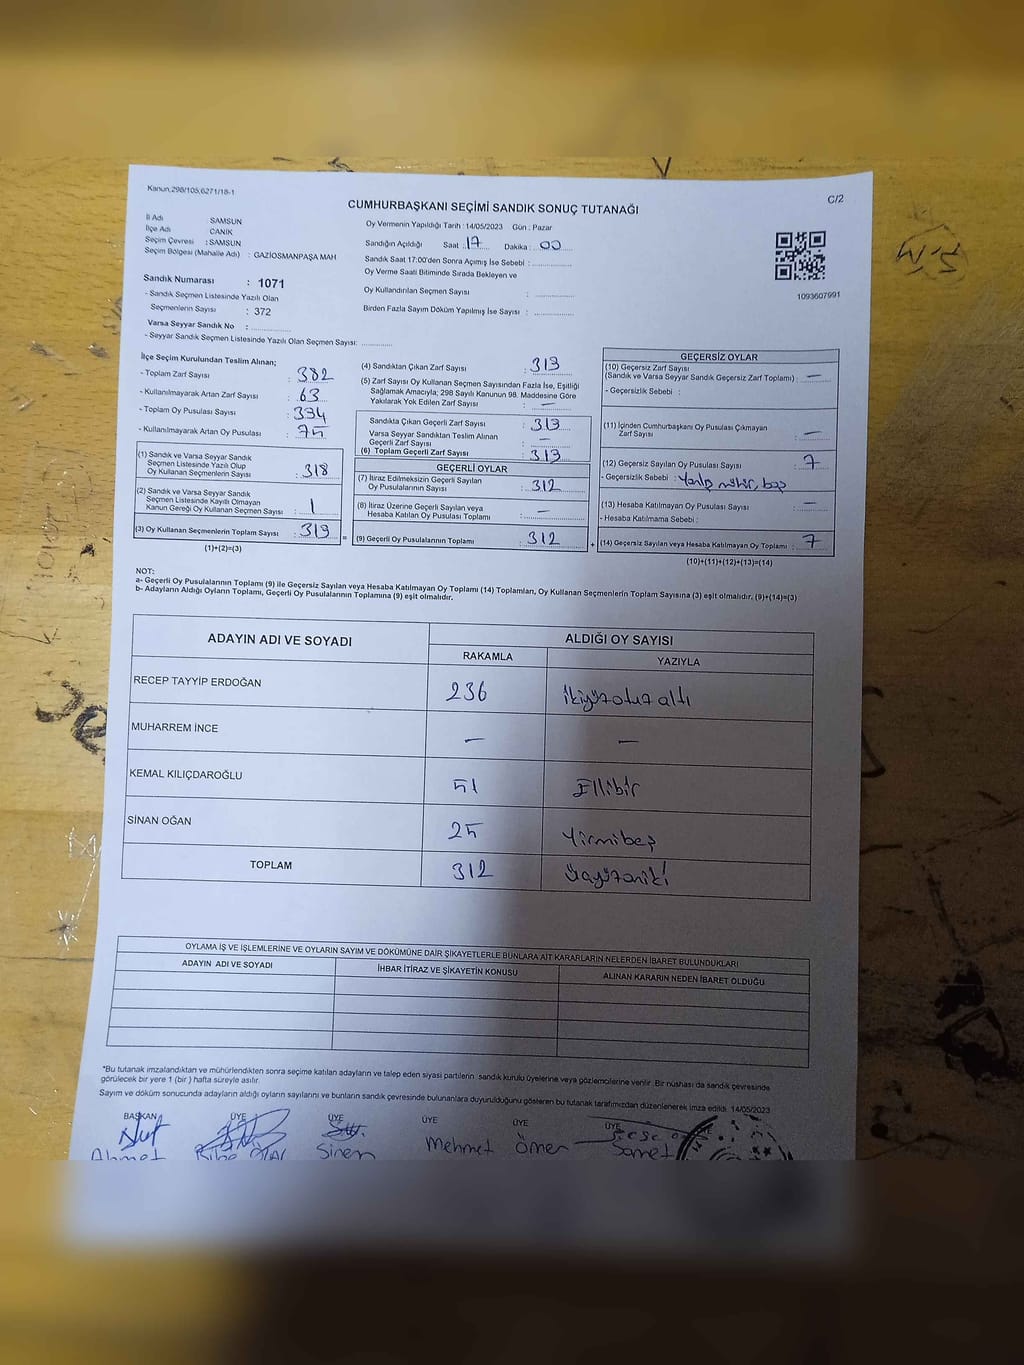 Kanun,298/105,6271/18-1
C/2
CUMHURBAŞKANI SEÇİMİ SANDIK SONUÇ TUTANAĞI
İl Adı SAMSUN
İlçe Adı CANİK
Seçim Çevresi : SAMSUN
Seçim Bölgesi (Mahalle Adı) : GAZİOSMANPAŞA MAH
Sandık Numarası : 1071
- Sandık Seçmen Listesinde Yazılı Olan
Seçmenlerin Sayısı : 372
Varsa Seyyar Sandık No :
- Seyyar Sandık Seçmen Listesinde Yazılı Olan Seçmen Sayısı:
Oy Vermenin Yapıldığı Tarih : 14/05/2023 Gün : Pazar
Sandığın Açıldığı Saat : 17 Dakika : 00
Sandık Saat 17:00'den Sonra Açımış İse Sebebi :
Oy Verme Saati Bitiminde Sırada Bekleyen ve
Oy Kullandırılan Seçmen Sayısı :
Birden Fazla Sayım Döküm Yapılmış İse Sayısı :
1093607991
İlçe Seçim Kurulundan Teslim Alınan;
- Toplam Zarf Sayısı : 382
- Kullanılmayarak Artan Zarf Sayısı : 63
- Toplam Oy Pusulası Sayısı : 394
- Kullanılmayarak Artan Oy Pusulası : 75
(1) Sandık ve Varsa Seyyar Sandık
Seçmen Listesinde Yazılı Olup
Oy Kullanan Seçmenlerin Sayısı : 318
(2) Sandık ve Varsa Seyyar Sandık
Seçmen Listesinde Kayıtlı Olmayan
Kanun Gereği Oy Kullanan Seçmen Sayısı : 1
(3) Oy Kullanan Seçmenlerin Toplam Sayısı : 319 =
(1)+(2)=(3)
(4) Sandıktan Çıkan Zarf Sayısı : 319
(5) Zarf Sayısı Oy Kullanan Seçmen Sayısından Fazla İse, Eşitliği
Sağlamak Amacıyla; 298 Sayılı Kanunun 98. Maddesine Göre
Yakılarak Yok Edilen Zarf Sayısı : —
Sandıkla Çıkan Geçerli Zarf Sayısı : 319
Varsa Seyyar Sandıktan Teslim Alınan
Geçerli Zarf Sayısı : —
(6) Toplam Geçerli Zarf Sayısı : 319
GEÇERLİ OYLAR
(7) İtiraz Edilmeksizin Geçerli Sayılan
Oy Pusulalarının Sayısı : 312
(8) İtiraz Üzerine Geçerli Sayılan veya
Hesaba Katılan Oy Pusulası Toplamı : —
(9) Geçerli Oy Pusulalarının Toplamı : 312 +
GEÇERSİZ OYLAR
(10) Geçersiz Zarf Sayısı
(Sandık ve Varsa Seyyar Sandık Geçersiz Zarf Toplamı) : —
- Geçersizlik Sebebi :
(11) İçinden Cumhurbaşkanı Oy Pusulası Çıkmayan
Zarf Sayısı : —
(12) Geçersiz Sayılan Oy Pusulası Sayısı : 7
- Geçersizlik Sebebi : Yanlış mühür, boş
(13) Hesaba Katılmayan Oy Pusulası Sayısı : —
- Hesaba Katılmama Sebebi :
(14) Geçersiz Sayılan veya Hesaba Katılmayan Oy Toplamı : 7
(10)+(11)+(12)+(13)=(14)
NOT:
a- Geçerli Oy Pusulalarının Toplamı (9) ile Geçersiz Sayılan veya Hesaba Katılmayan Oy Toplamı (14) Toplamları, Oy Kullanan Seçmenlerin Toplam Sayısına (3) eşit olmalıdır. (9)+(14)=(3)
b- Adayların Aldığı Oyların Toplamı, Geçerli Oy Pusulalarının Toplamına (9) eşit olmalıdır.
ADAYIN ADI VE SOYADI ALDIĞI OY SAYISI
RAKAMLA YAZIYLA
RECEP TAYYİP ERDOĞAN 236 İkiyüzotuz altı
MUHARREM İNCE — —
KEMAL KILIÇDAROĞLU 51 Ellibir
SİNAN OĞAN 25 Yirmibeş
TOPLAM 312 Üçyüzoniki
OYLAMA İŞ VE İŞLEMLERİNE VE OYLARIN SAYIM VE DÖKÜMÜNE DAİR ŞİKAYETLERLE BUNLARA AİT KARARLARIN NELERDEN İBARET BULUNDUKLARI
ADAYIN ADI VE SOYADI İHBAR İTİRAZ VE ŞİKAYETİN KONUSU ALINAN KARARIN NEDEN İBARET OLDUĞU
*Bu tutanak imzalandıktan ve mühürlendikten sonra seçime katılan adayların ve talep eden siyasi partilerin sandık kurulu üyelerine veya gözlemcilerine verilir. Bir nüshası da sandık çevresinde
görülecek bir yere 1 (bir ) hafta süreyle asılır.
Sayım ve döküm sonucunda adayların aldığı oyların sayılarını ve bunların sandık çevresinde bulunanlara duyurulduğunu gösteren bu tutanak tarafımızdan düzenlenerek imza edildi. 14/05/2023
BAŞKAN ÜYE ÜYE ÜYE ÜYE ÜYE ÜYE
Ahmet Sinem Mehmet Ömer Samet